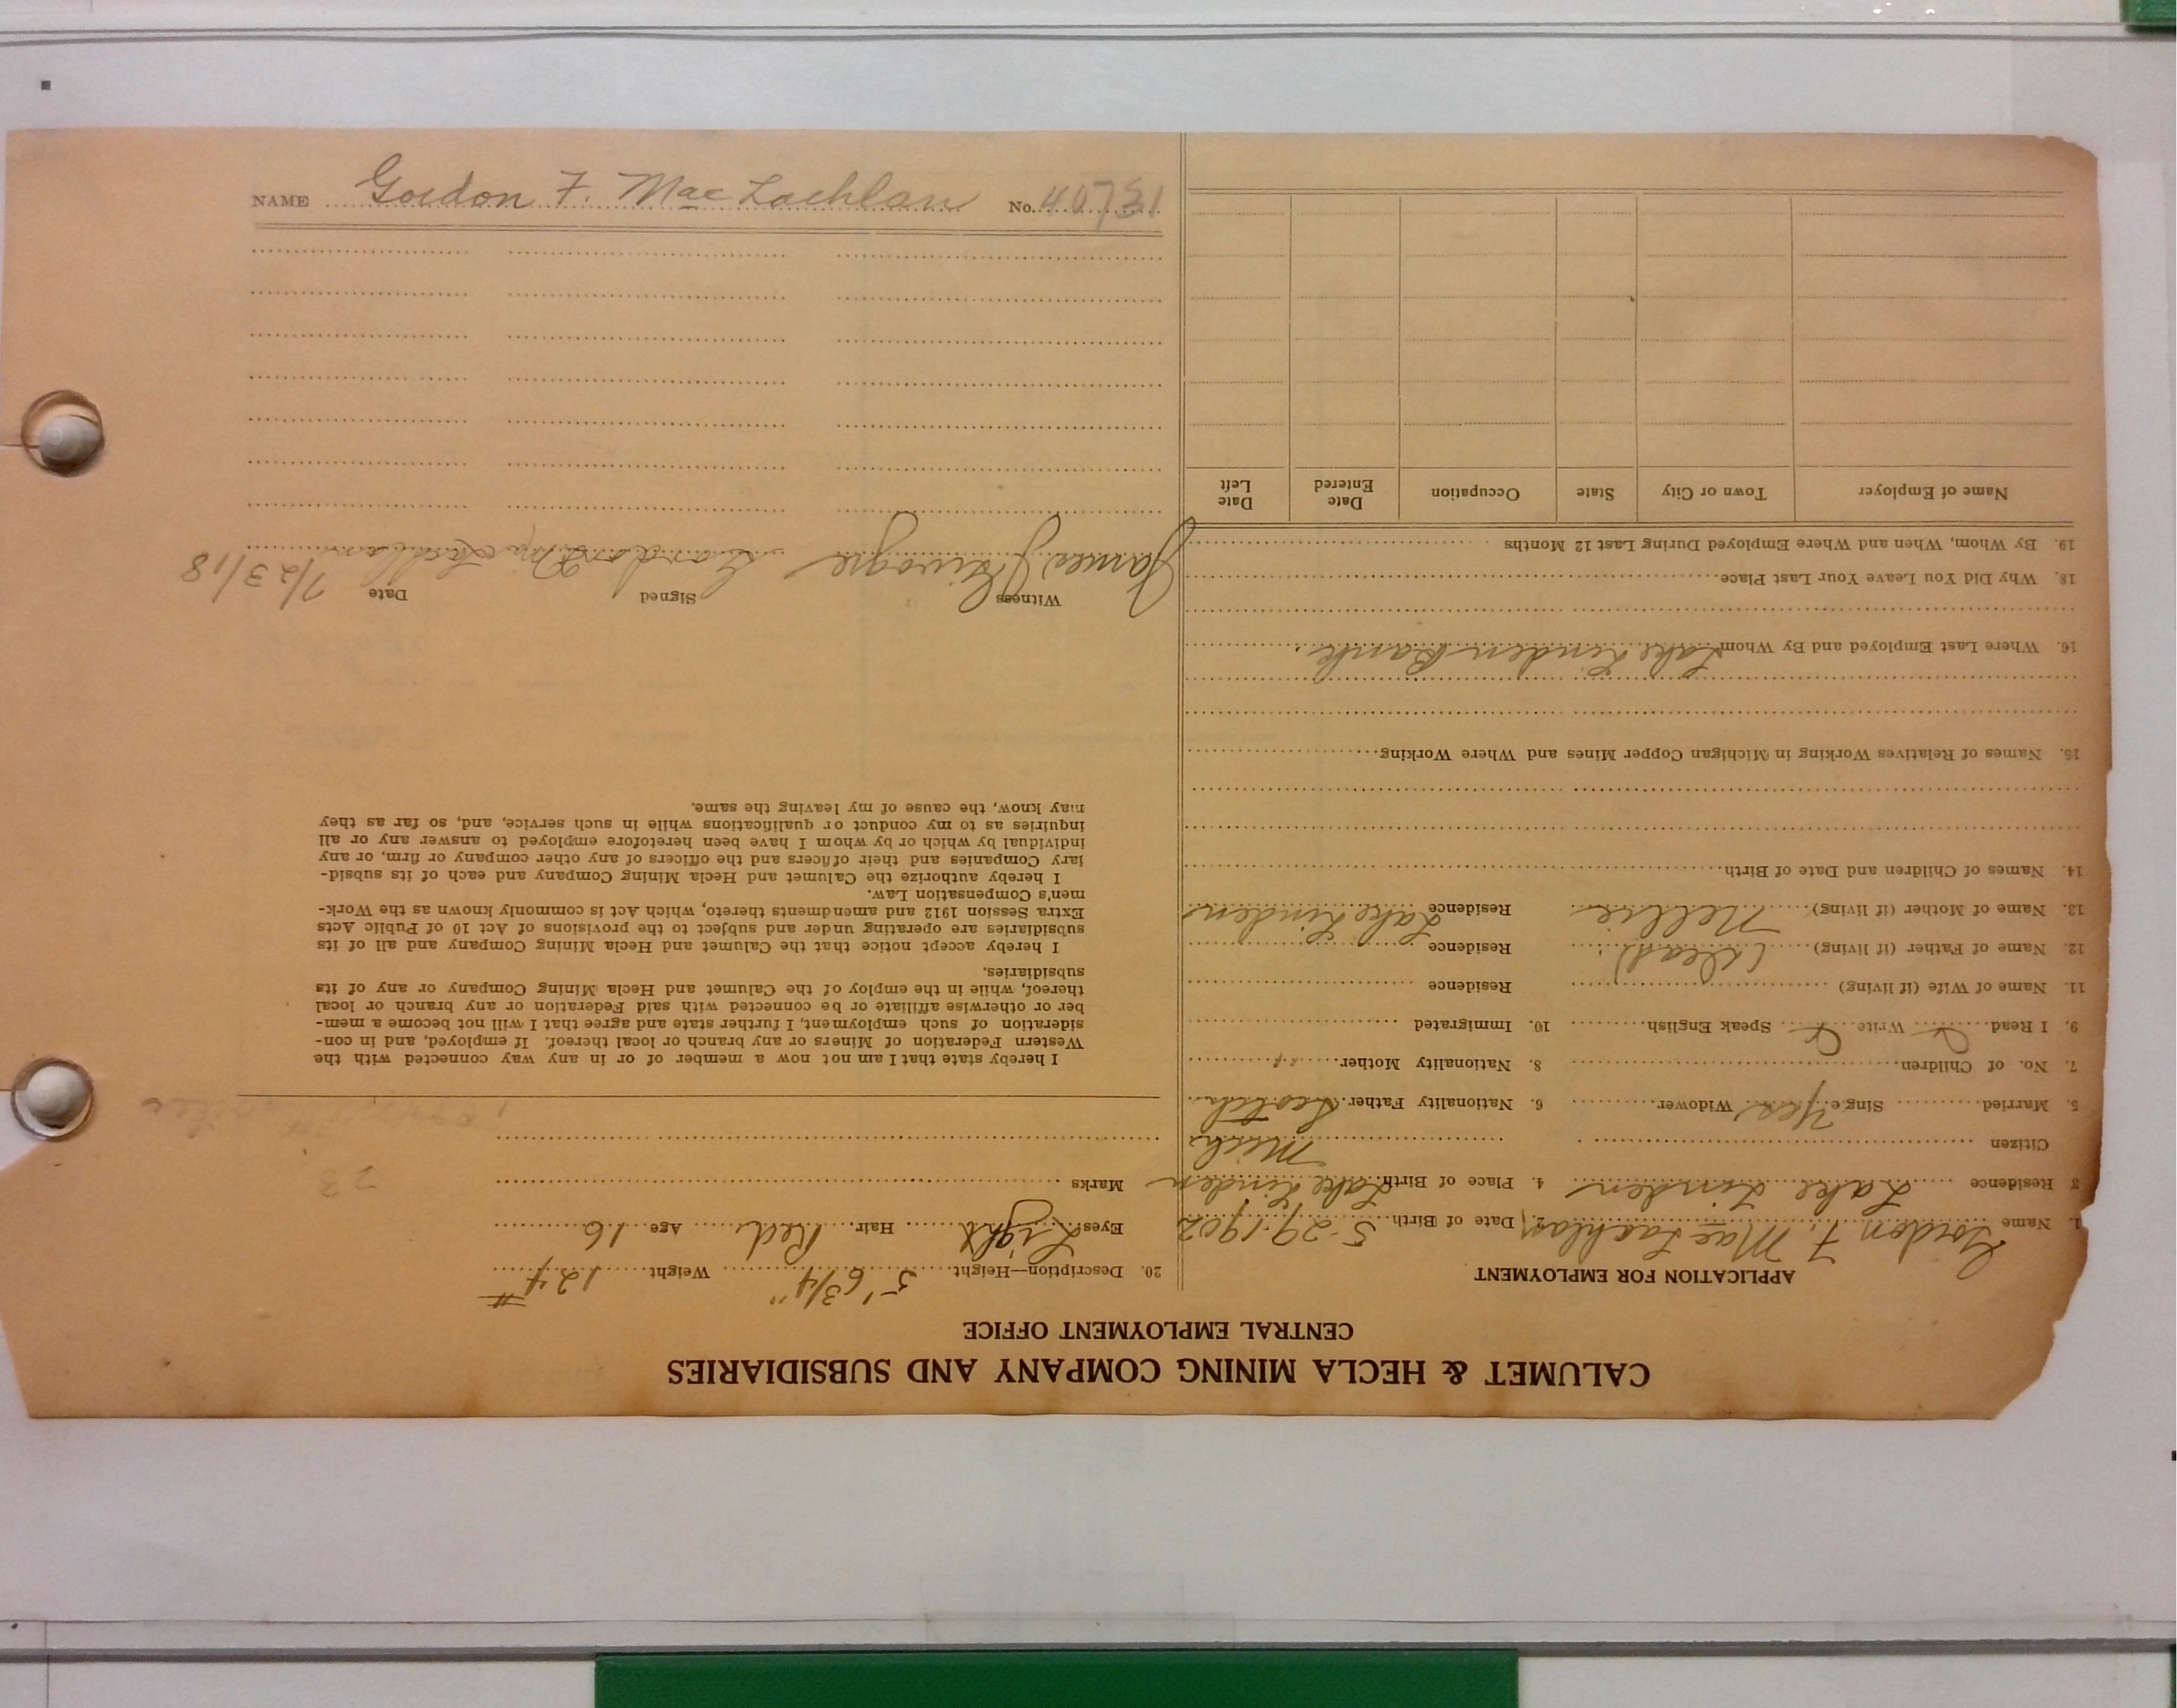 CALUMET & HECLA MINING COMPANY AND SUBSIDIARIES
CENTRAL EMPLOYMENT OFFICE
APPLICATION FOR EMPLOYMENT
1. Name Gordon F. Mac Lachlan 2. Date of Birth 5-29-1902
3 Residence Lake Linden 4. Place of Birth Lake Linden
Citizen Mich
5. Married Single Yes Widower 6. Nationality Father Scotch
7. No. of Children 8. Nationality Mother "
9. I Read Write Speak English 10. Immigrated
11. Name of Wife (if living) Residence
12. Name of Father (if living) (Dead) Residence
13. Name of Mother (if living) Nellie Residence Lake Linden
14. Names of Children and Date of Birth
15. Names of Relatives Working in Michigan Copper Mines and Where Working
16. Where Last Employed and By Whom Lake Linden Bank
18. Why Did You Leave Your Last Place
19. By Whom, When and Where Employed During Last 12 Months
Name of Employer Town or City State Occupation Date Entered Date Left
20. Description—Height 5' 6 3/4" Weight 124 #
Eyes Light Hair Red Age 16
Marks
23
I hereby state that I am not now a member of or in any way connected with the
Western Federation of Miners or any branch or local thereof. If employed, and in con-
sideration of such employment, I further state and agree that I will not become a mem-
ber or otherwise affiliate or be connected with said Federation or any branch or local
thereof, while in the employ of the Calumet and Hecla Mining Company or any of its
subsidiaries.
I hereby accept notice that the Calumet and Hecla Mining Company and all of its
subsidiaries are operating under and subject to the provisions of Act 10 of Public Acts
Extra Session 1912 and amendments thereto, which Act is commonly known as the Work-
men's Compensation Law.
I hereby authorize the Calumet and Hecla Mining Company and each of its subsid-
iary Companies and their officers and the officers of any other company or firm, or any
individual by which or by whom I have been heretofore employed to answer any or all
inquiries as to my conduct or qualifications while in such service, and, so far as they
may know, the cause of my leaving the same.
Witness Signed Date
James Gordon F. Mac Lachlan 7/23/18
NAME Gordon F. Mac Lachlan No. 40731